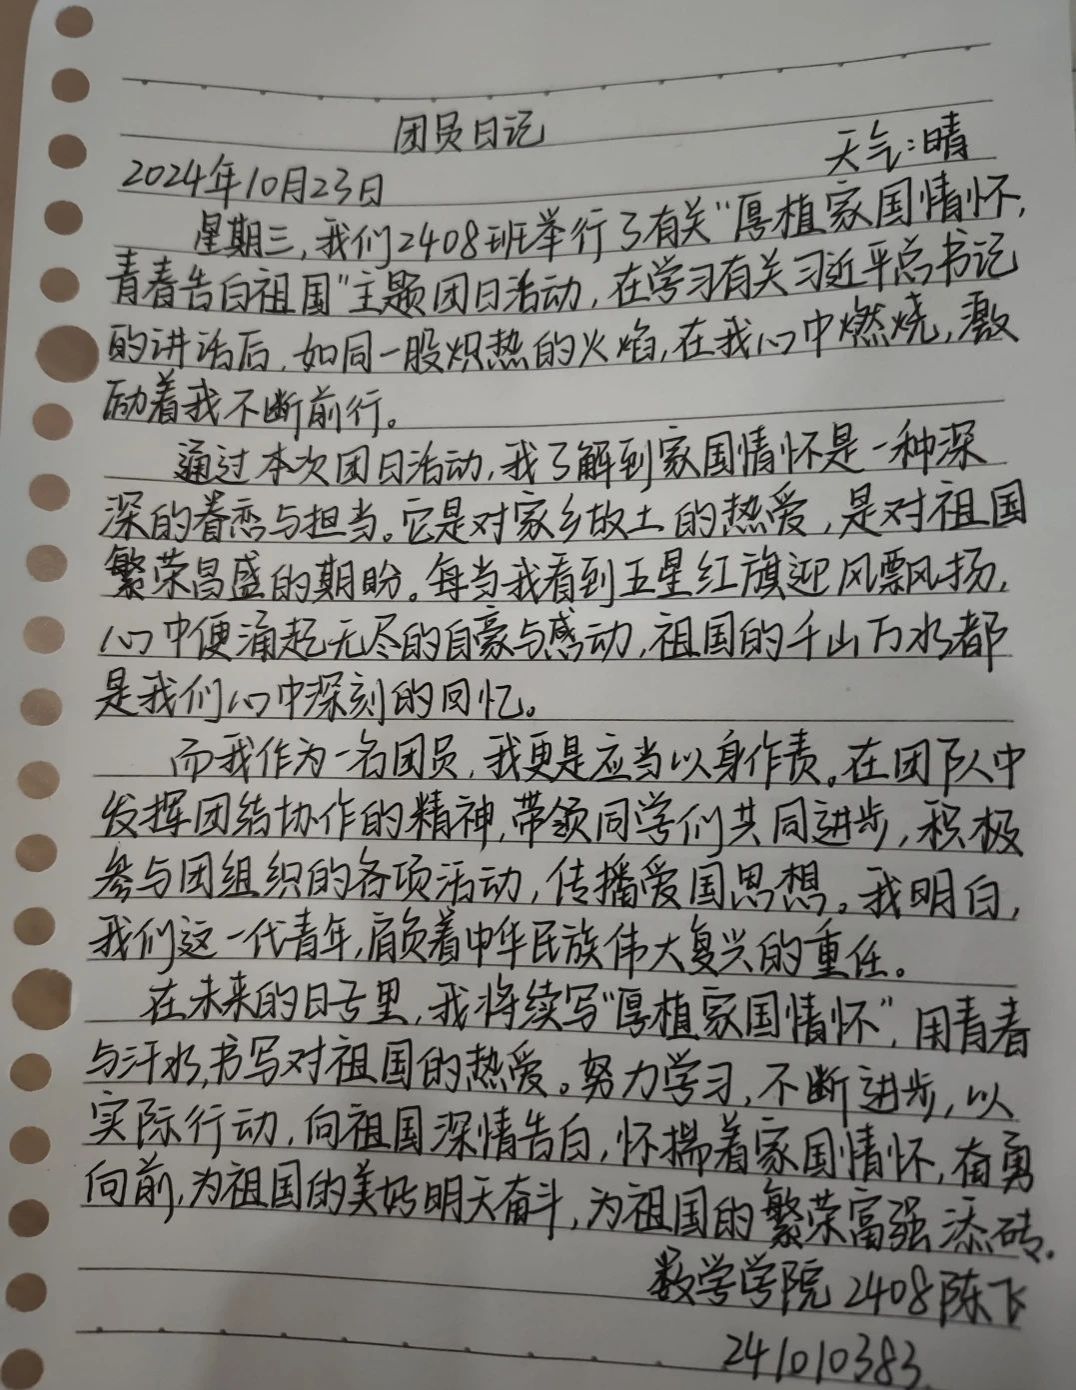 团员日记
2024年10月23日 天气:晴
星期三,我们2408班举行了有关“厚植家国情怀,
青春告白祖国”主题团日活动,在学习有关习近平总书记
的讲话后,如同一股炽热的火焰,在我心中燃烧,激
励着我不断前行。
通过本次团日活动,我了解到家国情怀是一种深
深的眷恋与担当。它是对家乡故土的热爱,是对祖国
繁荣昌盛的期盼。每当我看到五星红旗迎风飘扬,
心中便涌起无尽的自豪与感动,祖国的千山万水都
是我们心中深刻的回忆。
而我作为一名团员,我更是应当以身作责。在团队中
发挥团结协作的精神,带领同学们共同进步,积极
参与团组织的各项活动,传播爱国思想。我明白,
我们这一代青年,肩负着中华民族伟大复兴的重任。
在未来的日子里,我将续写“厚植家国情怀”,用青春
与汗水,书写对祖国的热爱。努力学习,不断进步,以
实际行动,向祖国深情告白,怀揣着家国情怀,奋勇
向前,为祖国的美好明天奋斗,为祖国的繁荣富强添砖.
数学学院 2408陈飞
241010383.